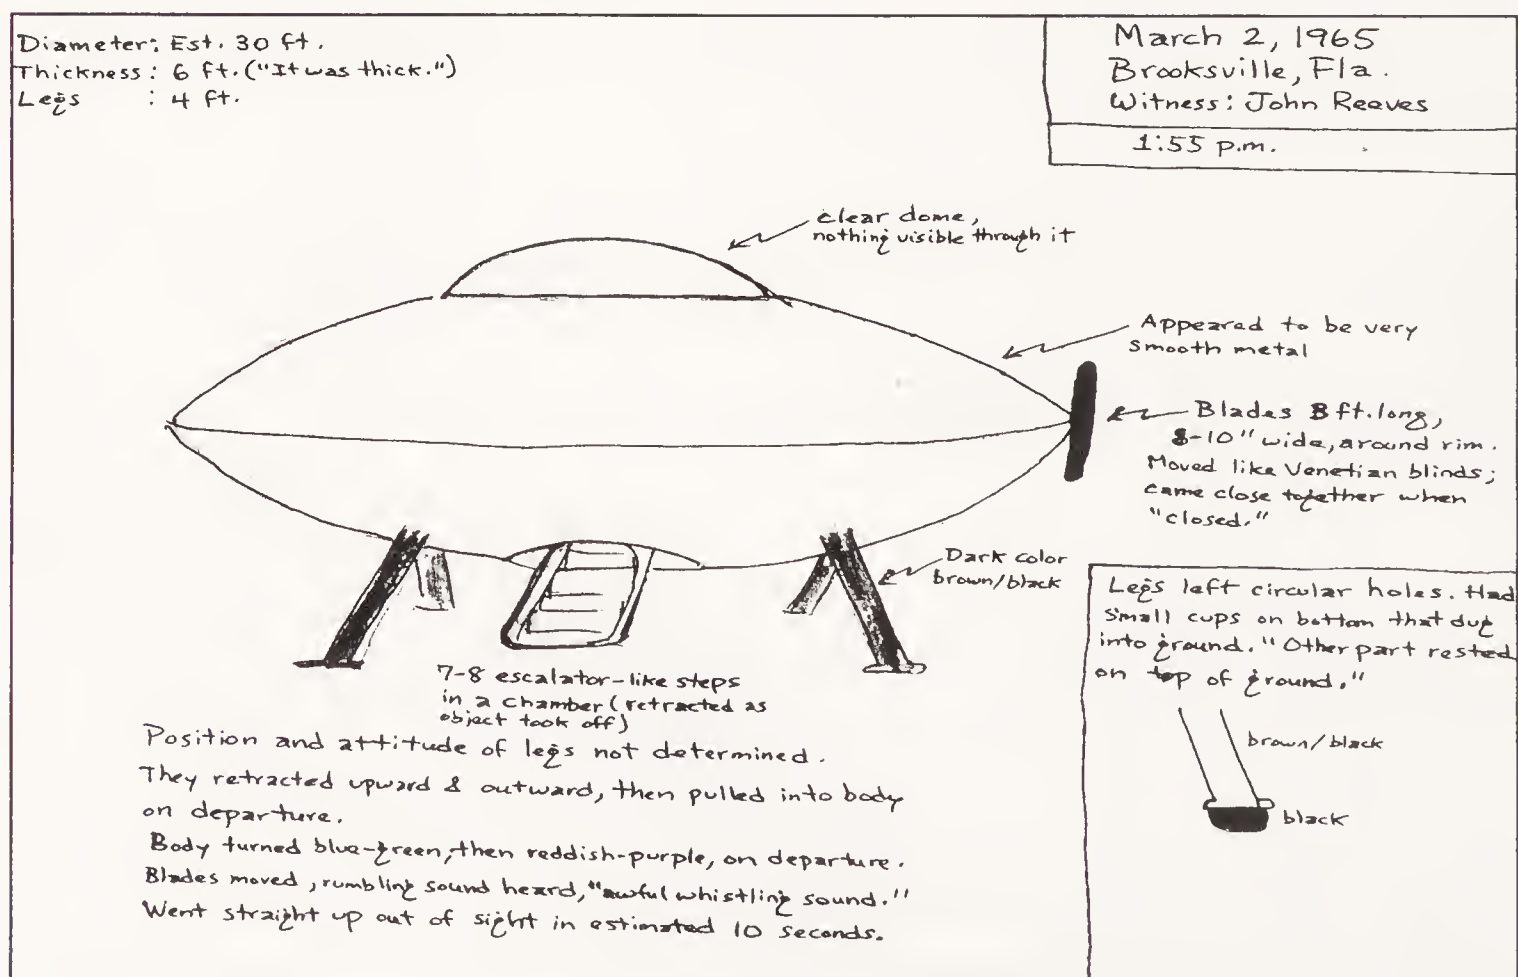 Diameter: Est. 30 ft.
Thickness: 6 ft. ("It was thick.")
Legs : 4 ft.
March 2, 1965
Brooksville, Fla.
Witness: John Reeves
1:55 p.m.
clear dome,
nothing visible through it
Appeared to be very
smooth metal
Blades 3 ft. long,
8-10" wide, around rim.
Moved like Venetian blinds;
came close together when
"closed."
Dark color
brown/black
7-8 escalator-like steps
in a chamber (retracted as
object took off)
Legs left circular holes. Had
small cups on bottom that dug
into ground. "Other part rested
on top of ground."
brown/black
black
Position and attitude of legs not determined.
They retracted upward & outward, then pulled into body
on departure.
Body turned blue-green, then reddish-purple, on departure.
Blades moved, rumbling sound heard, "awful whistling sound."
Went straight up out of sight in estimated 10 seconds.